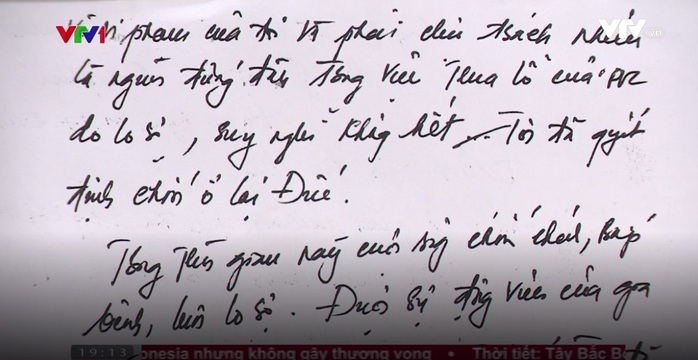 VTV1
VTV
vi phạm của tôi và phải chịu trách nhiệm
là người đứng đầu trong việc thua lỗ của PVC
do lo sợ, suy nghĩ không hết. Tôi đã quyết
định trốn ở lại Đức.
Trong thời gian này cuộc sống chán chường, bấp
bênh, luôn lo sợ. Được sự động viên của gia
19:13 onesia nhưng không gây thương vong • Thời tiết: Tây Bắc B